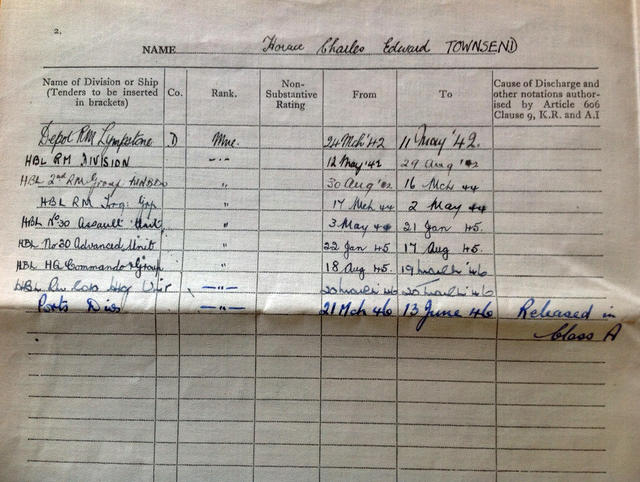 2.
NAME Horace Charles Edward TOWNSEND
Name of Division or Ship (Tenders to be inserted in brackets) Co. Rank. Non-Substantive Rating From To Cause of Discharge and other notations authorised by Article 606 Clause 9, K.R. and A.I
Depot RM Lympstone D Mne. 24 Mch '42 11 May '42.
HBL RM DIVISION -"- 12 May '42 29 Aug '42
HBL 2nd RM Group " 30 Aug '42 16 Mch 44
HBL RM Trg: Grp " 17 Mch 44 2 May 44
HBL No 30 Assault Unit " 3 May 44 21 Jan 45.
HBL No 30 Advanced Unit " 22 Jan 45 17 Aug 45.
HBL HQ Commando Group " 18 Aug 45. 19 March '46
HBL —"— 20 March 46 20 March '46
Ports Div —"— 21 Mch 46 13 June 46 Released in
Class A